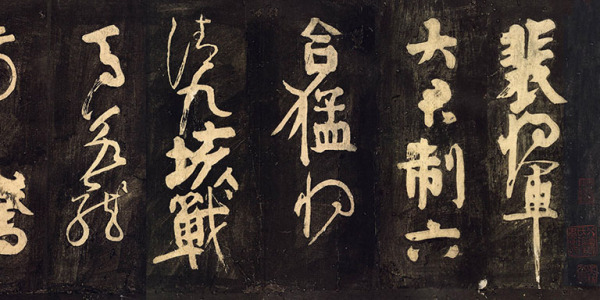 裴將軍
大君制六
合猛將
清九垓戰
馬若龍